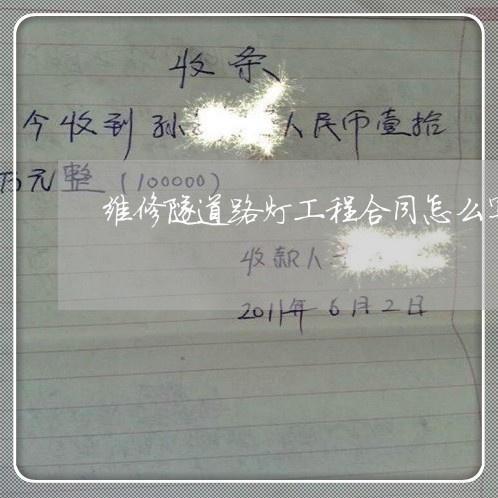 收条
今收到孙 人民币壹拾
万元整（100000）
维修隧道路灯工程合同怎么写
收款人
2011年6月2日